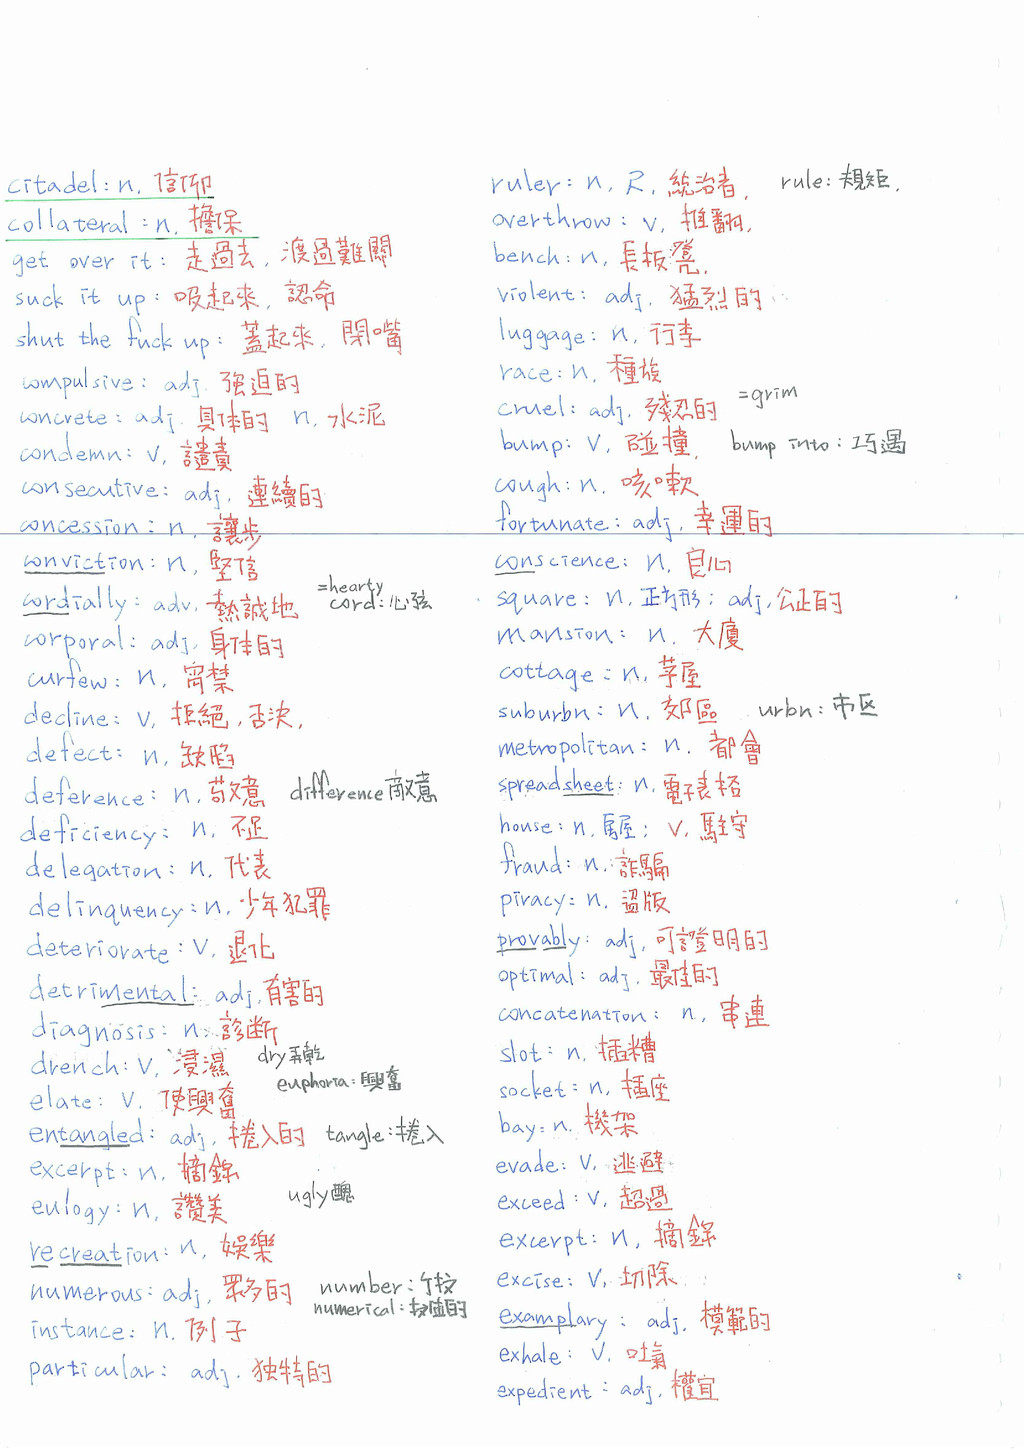 citadel: n. 信仰
collateral: n. 擔保
get over it: 走過去, 渡過難關
suck it up: 吸起來, 認命
shut the fuck up: 蓋起來, 閉嘴
compulsive: adj. 強迫的
concrete: adj. 具体的 n. 水泥
condemn: v. 譴責
consecutive: adj. 連續的
concession: n. 讓步
conviction: n. 堅信
cordially: adv. 熱誠地 =hearty
cord: 心弦
corporal: adj. 身体的
curfew: n. 宵禁
decline: v. 拒絕, 否決.
defect: n. 缺陷
deference: n. 敬意 difference 敵意
deficiency: n. 不足
delegation: n. 代表
delinquency: n. 少年犯罪
deteriorate: v. 退化
detrimental: adj. 有害的
diagnosis: n. 診斷
drench: v. 浸濕 dry 弄乾
euphoria: 興奮
elate: v. 使興奮
entangled: adj. 捲入的 tangle: 捲入
excerpt: n. 摘錄
eulogy: n. 讚美 ugly 醜
recreation: n. 娛樂
numerous: adj. 眾多的 number:
numerical:
instance: n. 例子
particular: adj. 独特的
ruler: n. R. 統治者. rule: 規矩.
overthrow: v. 推翻.
bench: n. 長板凳.
violent: adj. 猛烈的
luggage: n. 行李
race: n. 種族
cruel: adj. 殘忍的 =grim
bump: v. 碰撞. bump into: 巧遇
cough: n. 咳嗽
fortunate: adj. 幸運的
conscience: n. 良心
square: n. 正方形; adj. 公正的
mansion: n. 大廈
cottage: n. 茅屋
suburbn: n. 郊區 urbn: 市区
metropolitan: n. 都會
spreadsheet: n. 電子表格
house: n. 房屋; v. 駐守
fraud: n. 詐騙
piracy: n. 盜版
provably: adj. 可證明的
optimal: adj. 最佳的
concatenation: n. 串連
slot: n. 插糟
socket: n. 插座
bay: n. 機架
evade: v. 逃避
exceed: v. 超過
excerpt: n. 摘錄
excise: v. 切除
examplary: adj. 模範的
exhale: v. 吐氣
expedient: adj. 權宜